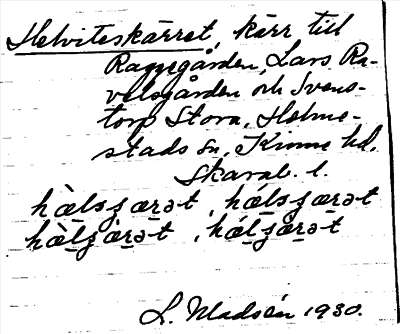 Helviteskärret, kärr till
Raggegården, Lars Ra-
velsgården och Svens-
torp Stora, Holme-
stads sn, Kinne hd,
Skarab. l.
hælsʒærət, hǽlsʒærət
hælʒærət, hǽlʒærət
L. Madsén 1930.